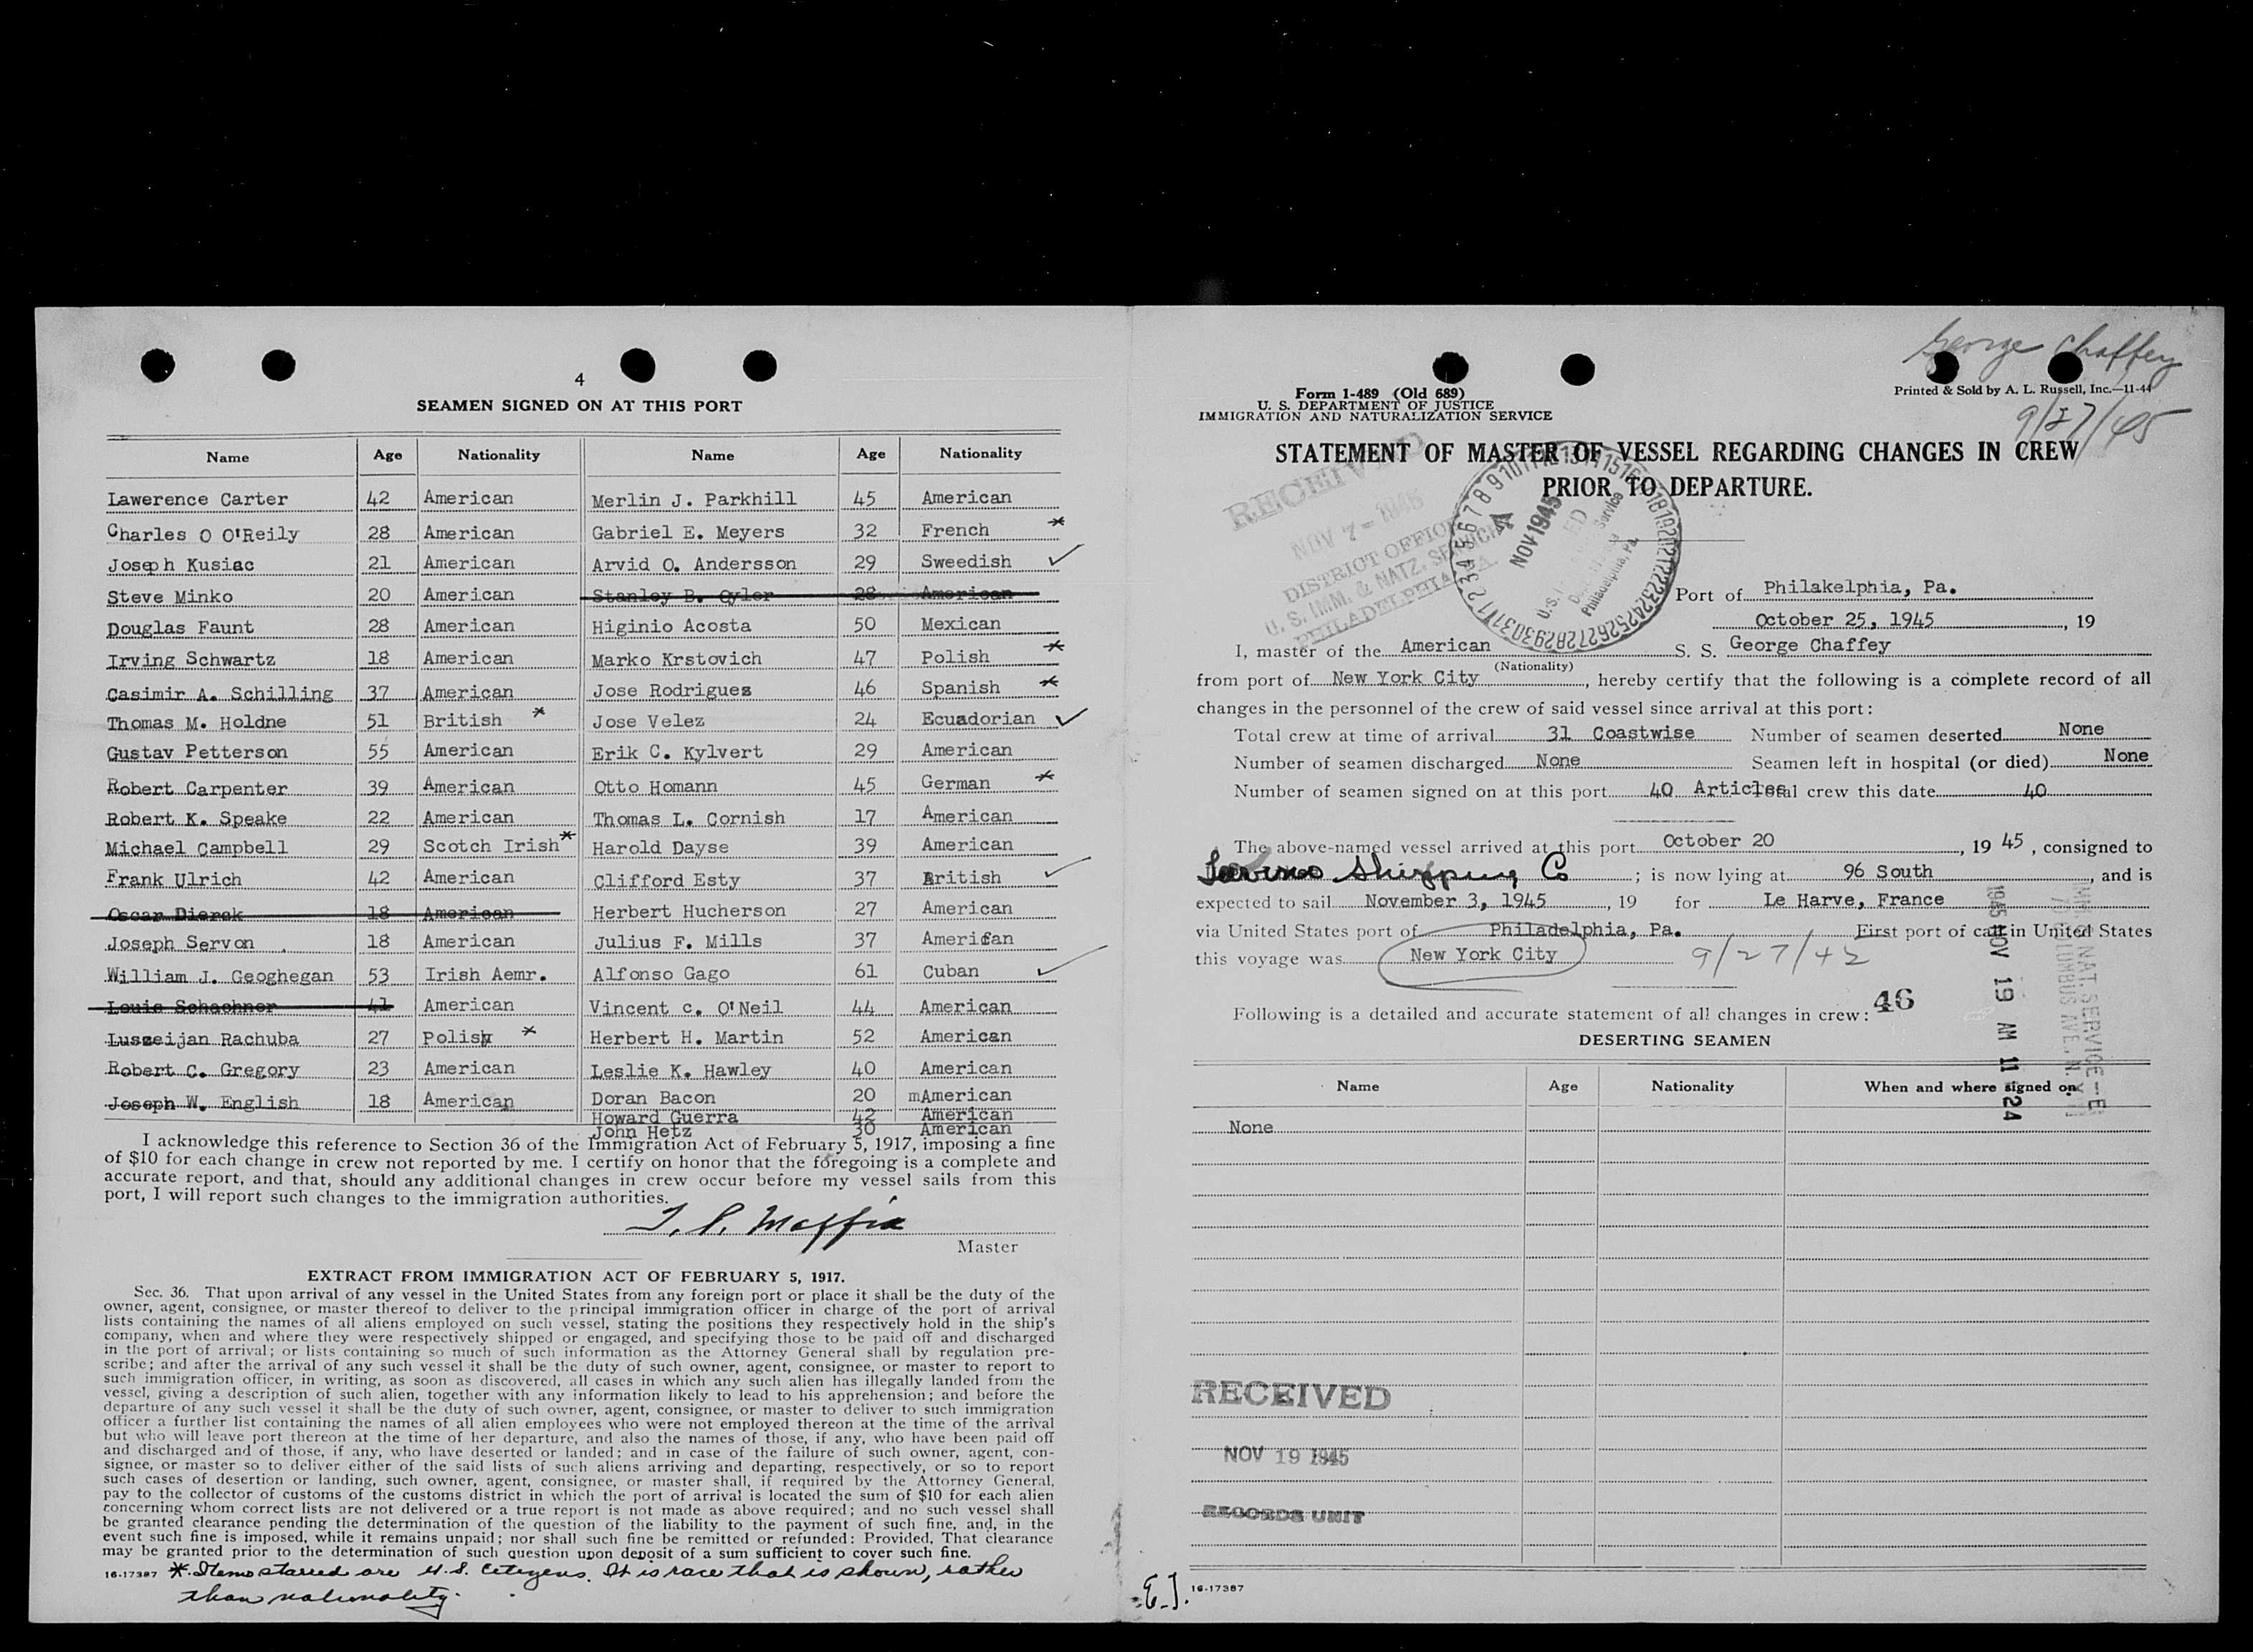 4
SEAMEN SIGNED ON AT THIS PORT
Name Age Nationality Name Age Nationality
Lawerence Carter 42 American Merlin J. Parkhill 45 American
Charles O O'Reily 28 American Gabriel E. Meyers 32 French *
Joseph Kusiac 21 American Arvid O. Andersson 29 Sweedish ✓
Steve Minko 20 American Stanley B. Oyler 28 American
Douglas Faunt 28 American Higinio Acosta 50 Mexican
Irving Schwartz 18 American Marko Krstovich 47 Polish *
Casimir A. Schilling 37 American Jose Rodrigues 46 Spanish *
Thomas M. Holdne 51 British * Jose Velez 24 Ecuadorian ✓
Gustav Petterson 55 American Erik C. Kylvert 29 American
Robert Carpenter 39 American Otto Homann 45 German *
Robert K. Speake 22 American Thomas L. Cornish 17 American
Michael Campbell 29 Scotch Irish * Harold Dayse 39 American
Frank Ulrich 42 American Clifford Esty 37 British ✓
Oscar Dierek 18 American Herbert Hucherson 27 American
Joseph Servon 18 American Julius F. Mills 37 American
William J. Geoghegan 53 Irish Aemr. Alfonso Gago 61 Cuban ✓
Louis Schachner 41 American Vincent c. O'Neil 44 American
Luszeijan Rachuba 27 Polish * Herbert H. Martin 52 American
Robert C. Gregory 23 American Leslie K. Hawley 40 American
Joseph W. English 18 American Doran Bacon 20 mAmerican
Howard Guerra 42 American
John Hetz 30 American
I acknowledge this reference to Section 36 of the Immigration Act of February 5, 1917, imposing a fine
of $10 for each change in crew not reported by me. I certify on honor that the foregoing is a complete and
accurate report, and that, should any additional changes in crew occur before my vessel sails from this
port, I will report such changes to the immigration authorities.
Master
EXTRACT FROM IMMIGRATION ACT OF FEBRUARY 5, 1917.
Sec. 36. That upon arrival of any vessel in the United States from any foreign port or place it shall be the duty of the
owner, agent, consignee, or master thereof to deliver to the principal immigration officer in charge of the port of arrival
lists containing the names of all aliens employed on such vessel, stating the positions they respectively hold in the ship's
company, when and where they were respectively shipped or engaged, and specifying those to be paid off and discharged
in the port of arrival; or lists containing so much of such information as the Attorney General shall by regulation pre-
scribe; and after the arrival of any such vessel it shall be the duty of such owner, agent, consignee, or master to report to
such immigration officer, in writing, as soon as discovered, all cases in which any such alien has illegally landed from the
vessel, giving a description of such alien, together with any information likely to lead to his apprehension; and before the
departure of any such vessel it shall be the duty of such owner, agent, consignee, or master to deliver to such immigration
officer a further list containing the names of all alien employees who were not employed thereon at the time of the arrival
but who will leave port thereon at the time of her departure, and also the names of those, if any, who have been paid off
and discharged and of those, if any, who have deserted or landed; and in case of the failure of such owner, agent, con-
signee, or master so to deliver either of the said lists of such aliens arriving and departing, respectively, or so to report
such cases of desertion or landing, such owner, agent, consignee, or master shall, if required by the Attorney General,
pay to the collector of customs of the customs district in which the port of arrival is located the sum of $10 for each alien
concerning whom correct lists are not delivered or a true report is not made as above required; and no such vessel shall
be granted clearance pending the determination of the question of the liability to the payment of such fine, and, in the
event such fine is imposed, while it remains unpaid; nor shall such fine be remitted or refunded: Provided, That clearance
may be granted prior to the determination of such question upon deposit of a sum sufficient to cover such fine.
16-17387 * Items starred are U.S. Citizens. It is race that is shown, rather
than nationality.
George Chaffey
9/27/45
Form 1-489 (Old 689)
U. S. DEPARTMENT OF JUSTICE
IMMIGRATION AND NATURALIZATION SERVICE
Printed & Sold by A. L. Russell, Inc.—11-44
STATEMENT OF MASTER OF VESSEL REGARDING CHANGES IN CREW
PRIOR TO DEPARTURE.
RECEIVED
NOV 7 - 1945
DISTRICT OFFICE
U. S. IMM. & NATZ. SERVICE
PHILADELPHIA PA.
NOV 1945
Philadelphia, Pa.
Port of Philakelphia, Pa.
October 25, 1945, 19
I, master of the American S. S. George Chaffey
(Nationality)
from port of New York City, hereby certify that the following is a complete record of all
changes in the personnel of the crew of said vessel since arrival at this port:
Total crew at time of arrival 31 Coastwise Number of seamen deserted None
Number of seamen discharged None Seamen left in hospital (or died) None
Number of seamen signed on at this port 40 Articles Total crew this date 40
The above-named vessel arrived at this port October 20, 19 45, consigned to
Shipping Co; is now lying at 96 South, and is
expected to sail November 3, 1945, 19 for Le Harve, France
via United States port of Philadelphia, Pa. First port of call in United States
this voyage was New York City 9/27/42
Following is a detailed and accurate statement of all changes in crew: 46
1945 NOV 19 AM 11 24
DESERTING SEAMEN
Name Age Nationality When and where signed on
None
RECEIVED
NOV 19 1945
RECORDS UNIT
E.J. 16-17387